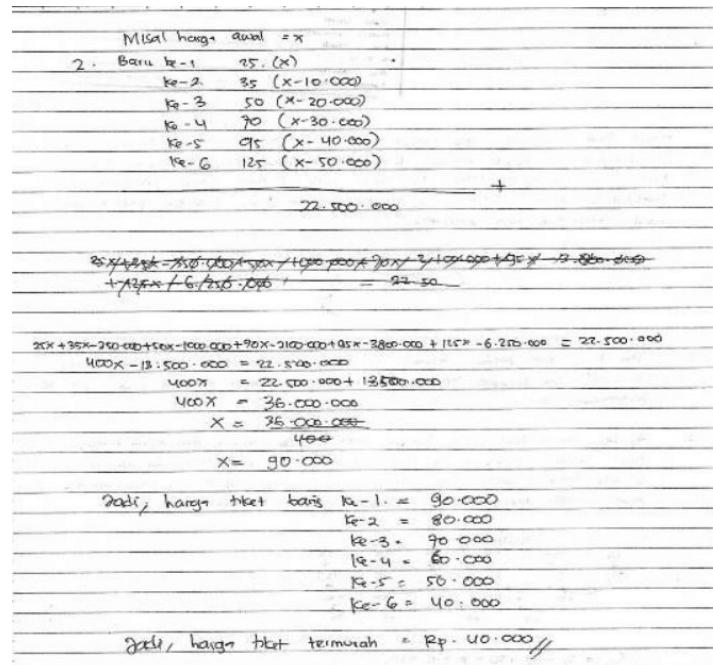 Misal harga awal = x
2. Baris ke-1 25 (x)
ke-2 35 (x-10.000)
ke-3 50 (x-20.000)
ke-4 70 (x-30.000)
ke-5 95 (x-40.000)
ke-6 125 (x-50.000)
+
22.500.000
= 22.50
25x+35x-350.000+50x-1000.000+70x-2100.000+95x-3800.000+125x-6.250.000 = 22.500.000
400x-13.500.000 = 22.500.000
400x = 22.500.000+13500.000
400x = 36.000.000
x = 36.000.000
400
x = 90.000
Jadi, harga tiket baris ke-1. = 90.000
ke-2 = 80.000
ke-3 = 70.000
ke-4 = 60.000
ke-5 = 50.000
ke-6 = 40.000
Jadi, harga tiket termurah = Rp. 40.000 //